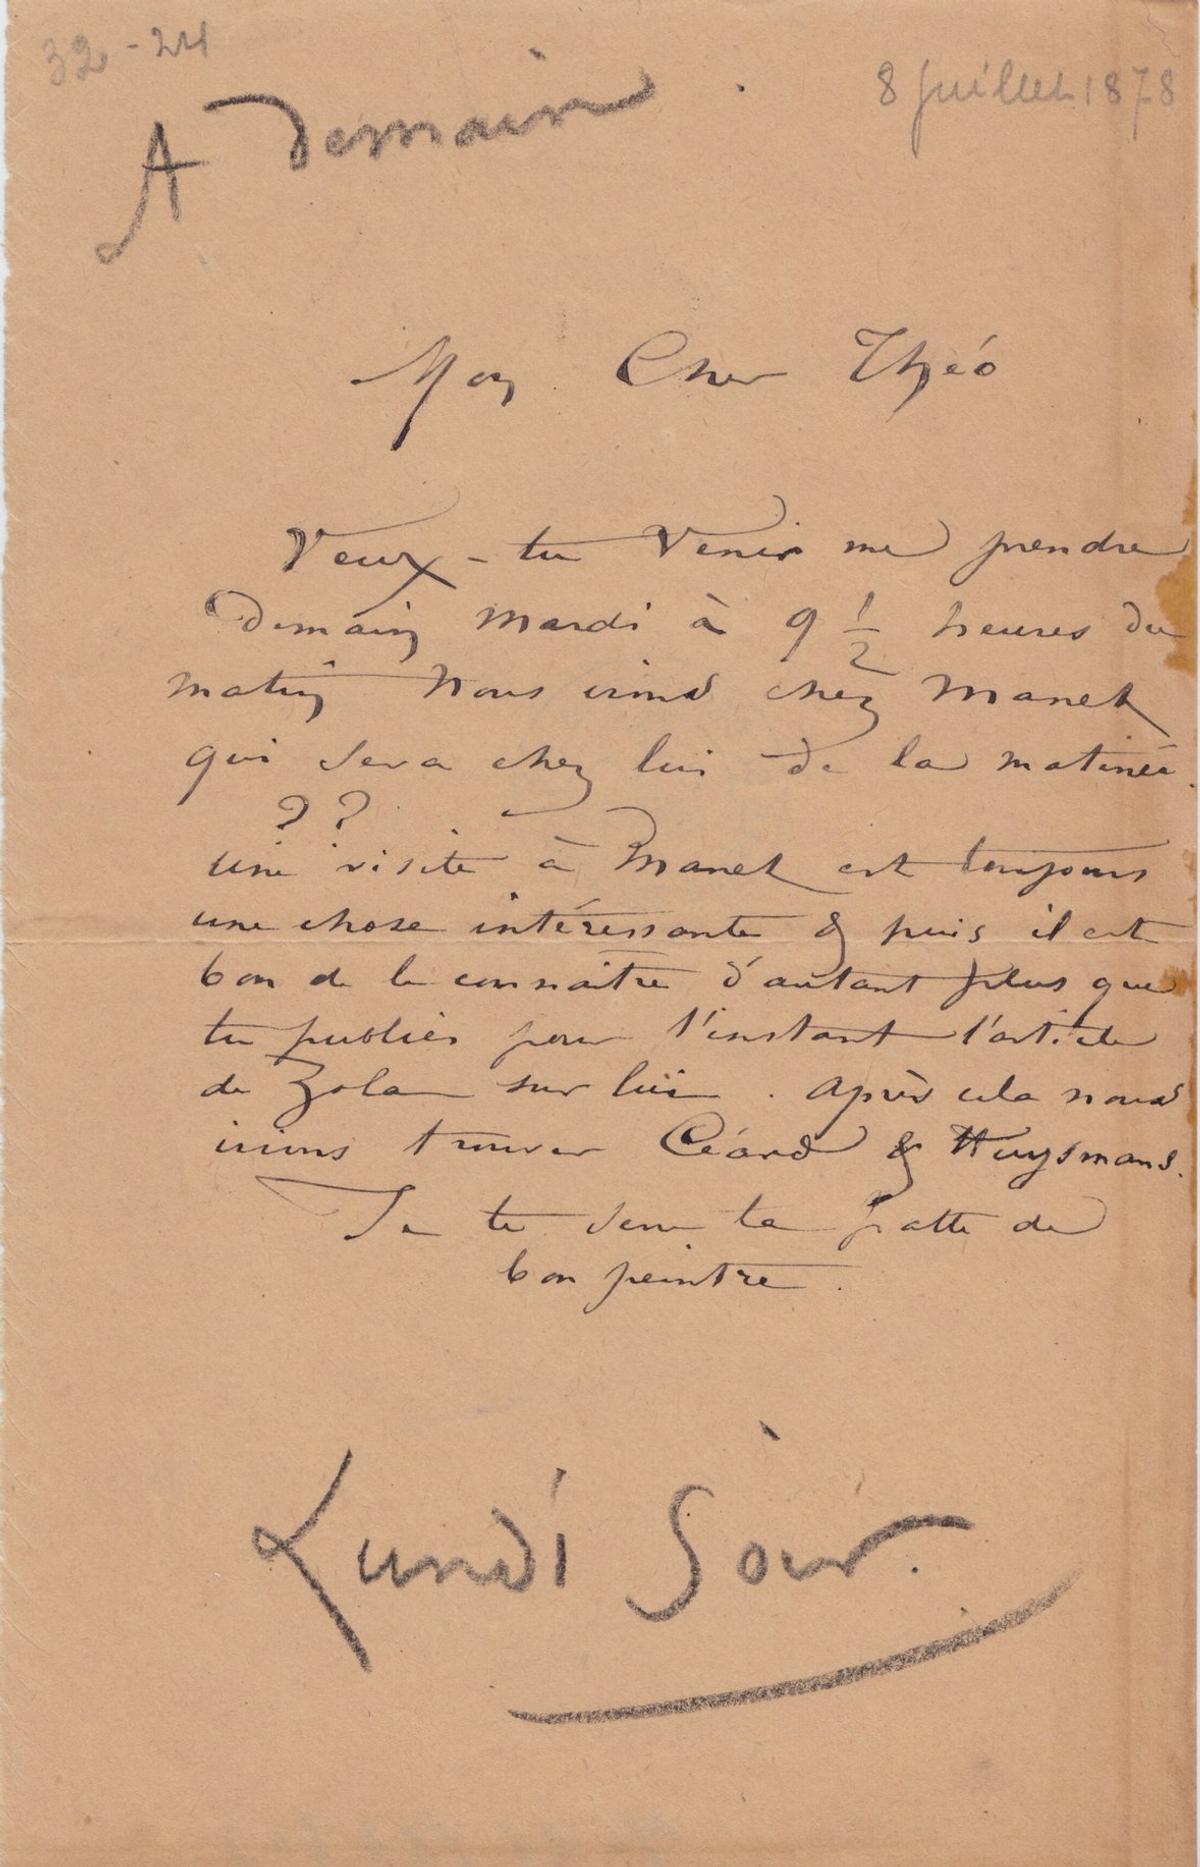 32-24
8 juillet 1878
A Demain
Mon Cher Théo
Veux-tu venir me prendre
Demain mardi à 9 1/2 heures du
matin Nous irons chez Manet
qui sera chez lui de la matinée.
? ?
une visite à Manet est toujours
une chose intéressante & puis il est
bon de le connaitre d'autant plus que
tu publies pour l'instant l'article
de Zola sur lui. Après cela nous
irions trouver Céard & Huysmans.
Je te serre ta patte de
bon peintre.
Lundi Soir.